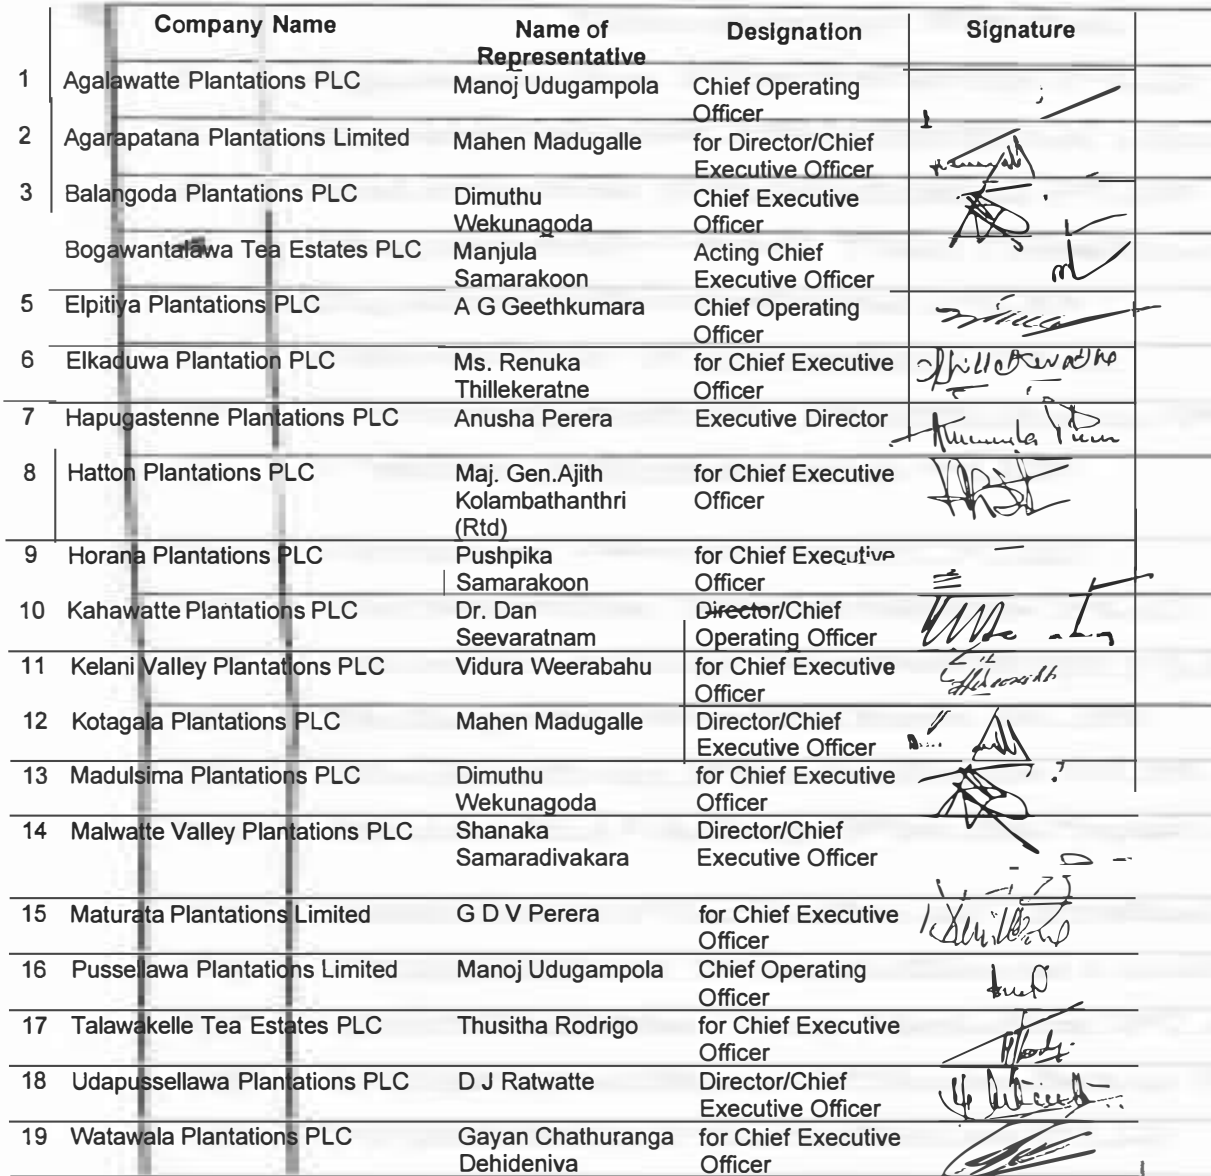 Company Name Name of Representative Designation Signature
1 Agalawatte Plantations PLC Manoj Udugampola Chief Operating Officer
2 Agarapatana Plantations Limited Mahen Madugalle for Director/Chief Executive Officer
3 Balangoda Plantations PLC Dimuthu Wekunagoda Chief Executive Officer
Bogawantalawa Tea Estates PLC Manjula Samarakoon Acting Chief Executive Officer
5 Elpitiya Plantations PLC A G Geethkumara Chief Operating Officer
6 Elkaduwa Plantation PLC Ms. Renuka Thillekeratne for Chief Executive Officer
7 Hapugastenne Plantations PLC Anusha Perera Executive Director
8 Hatton Plantations PLC Maj. Gen.Ajith Kolambathanthri (Rtd) for Chief Executive Officer
9 Horana Plantations PLC Pushpika Samarakoon for Chief Executive Officer
10 Kahawatte Plantations PLC Dr. Dan Seevaratnam Director/Chief Operating Officer
11 Kelani Valley Plantations PLC Vidura Weerabahu for Chief Executive Officer
12 Kotagala Plantations PLC Mahen Madugalle Director/Chief Executive Officer
13 Madulsima Plantations PLC Dimuthu Wekunagoda for Chief Executive Officer
14 Malwatte Valley Plantations PLC Shanaka Samaradivakara Director/Chief Executive Officer
15 Maturata Plantations Limited G D V Perera for Chief Executive Officer
16 Pussellawa Plantations Limited Manoj Udugampola Chief Operating Officer
17 Talawakelle Tea Estates PLC Thusitha Rodrigo for Chief Executive Officer
18 Udapussellawa Plantations PLC D J Ratwatte Director/Chief Executive Officer
19 Watawala Plantations PLC Gayan Chathuranga Dehideniva for Chief Executive Officer